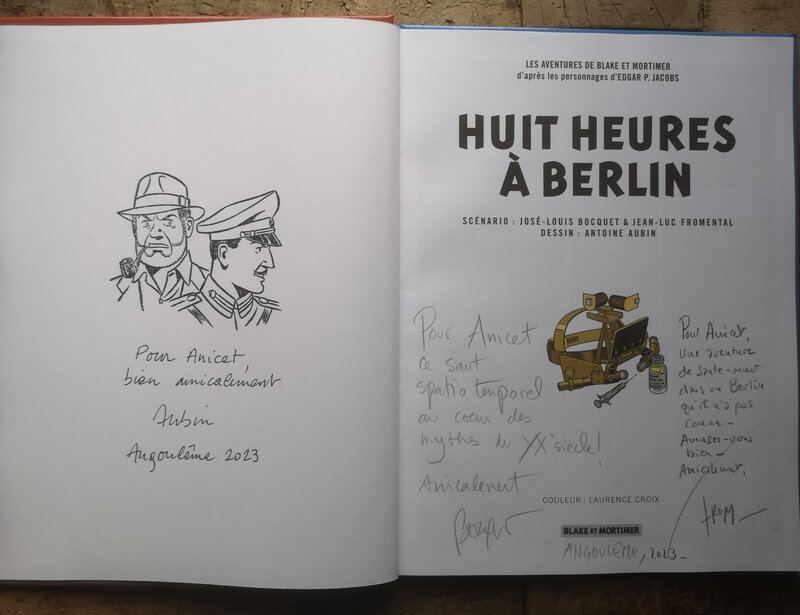 Pour Anicet,
bien amicalement
Aubin
Angoulême 2023
LES AVENTURES DE BLAKE ET MORTIMER
d'après les personnages d'EDGAR P. JACOBS
HUIT HEURES
À BERLIN
SCÉNARIO : JOSÉ-LOUIS BOCQUET & JEAN-LUC FROMENTAL
DESSIN : ANTOINE AUBIN
Pour Anicet
ce saut
spatio temporel
au coeur des
mythes du XXe siècle !
Amicalement
Bocquet
Pour Anicet,
une aventure
de
dans un Berlin
qu'il n'a pas
connu -
Amusez-vous
bien -
Amicalement,
FROM
COULEUR : LAURENCE CROIX
BLAKE ET MORTIMER
ANGOULÊME, 2023 -